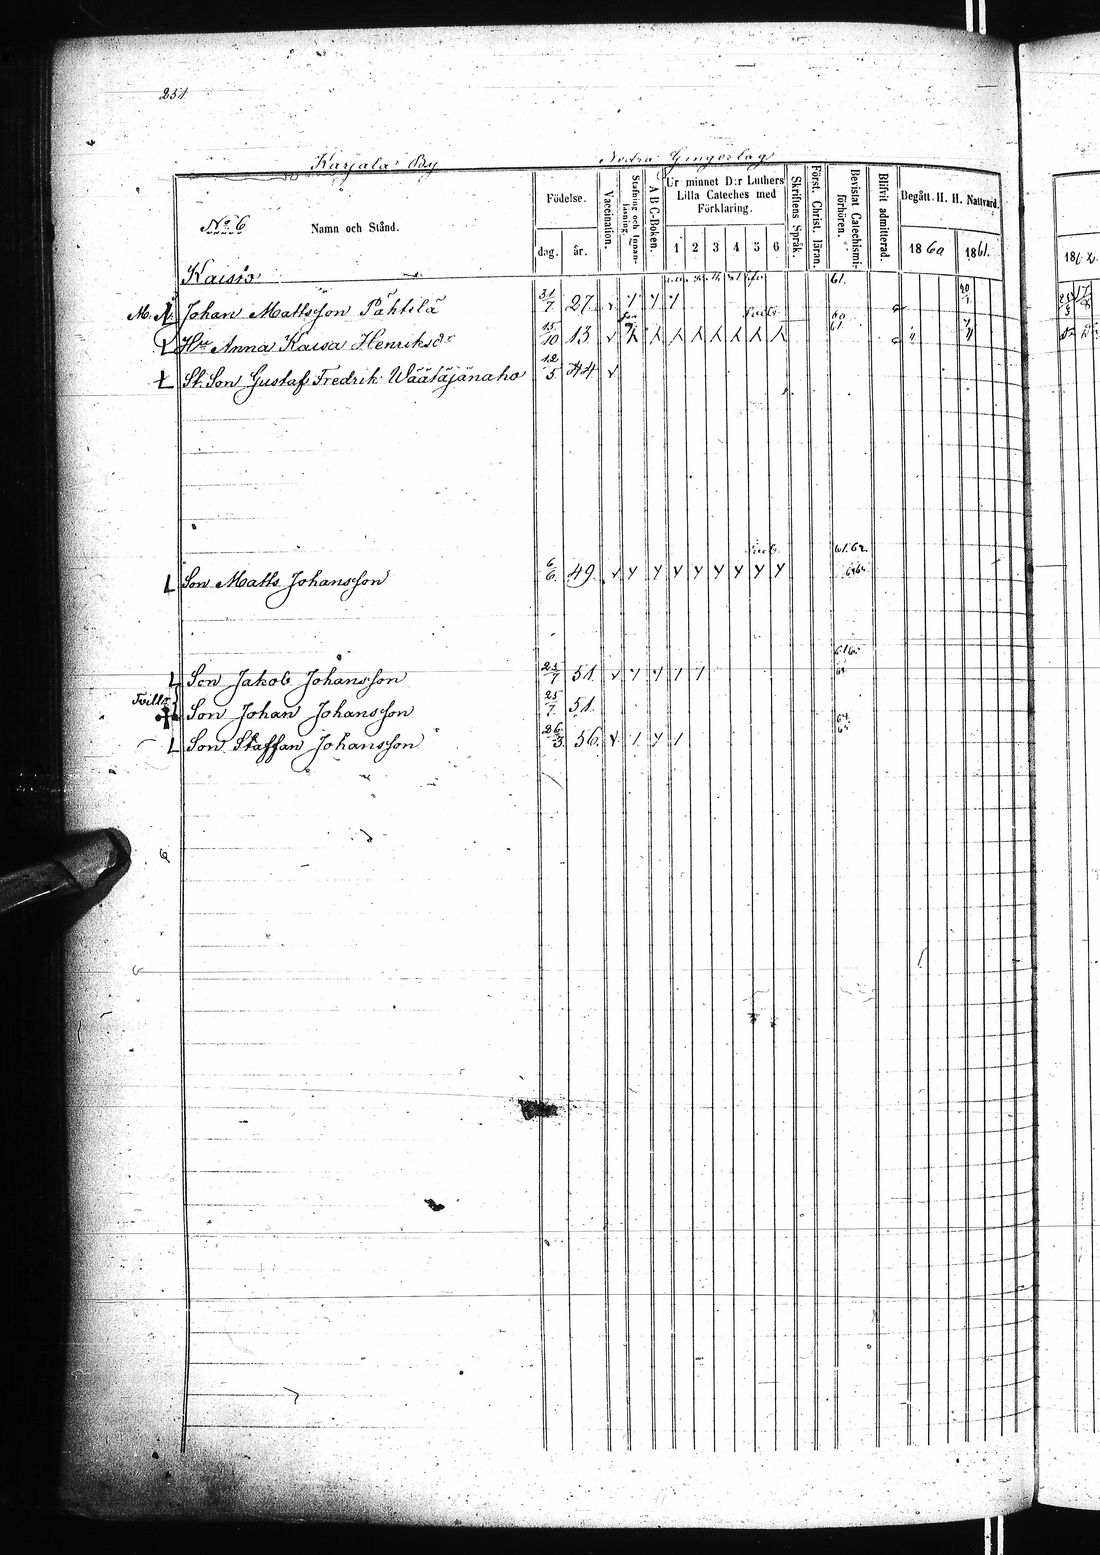 254
Karjala By Nedra Gingerlag
Nº 6 Namn och Stånd. Födelse. dag. år. Vaccination. Stafning och Innan-läsning. A B C-Boken. Ur minnet D:r Luthers Lilla Cateches med Förklaring. 1 2 3 4 5 6 Skriftens Språk. Först. Christ. läran. Bevistat Catechismi-förhören. Blifvit admitterad. Begått H. H. Nattvard. 1860 1861.
Kaisio 61.
M. Johan Mattsson Pähtilä 31/7 27.
H:u Anna Kaisa Henriksdr 15/10 13. 60 61
St. Son Gustaf Fredrik Wäätäjänaho 12/5 44
Son Matts Johansson 6/6 49. 61.62.
Son Jakob Johansson 25/7 51.
Son Johan Johansson 25/7. 51.
Son Staffan Johansson 26/3 56.